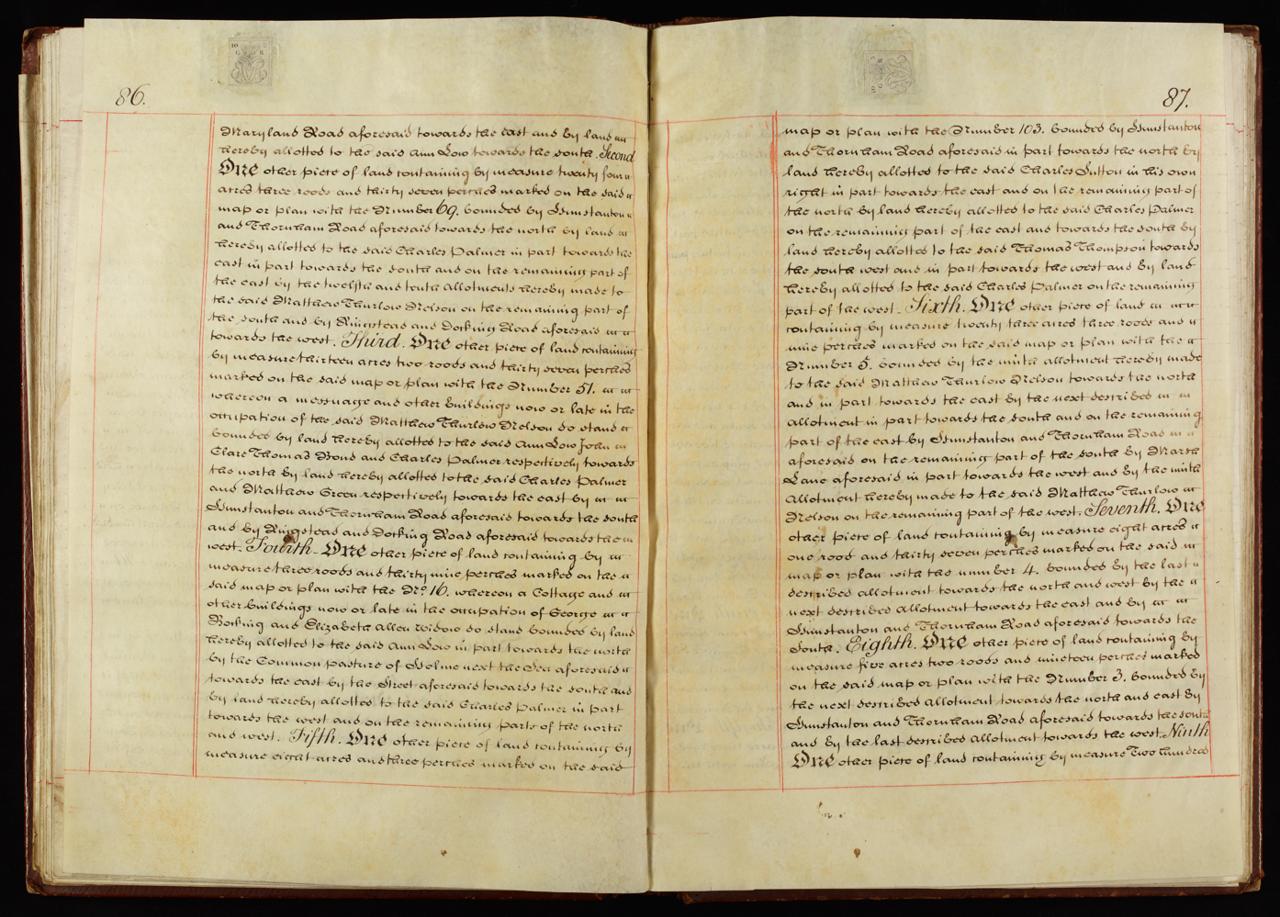 86.
Maryland Road aforesaid towards the east and by land
hereby allotted to the said Ann Low towards the south. Second
One other piece of land containing by measure twenty four
acres three roods and thirty seven perches marked on the said
map or plan with the Number 69. bounded by Hunstanton
and Thornham Road aforesaid towards the north by land
hereby allotted to the said Charles Palmer in part towards the
east in part towards the south and on the remaining part of
the east by the twelfth and tenth allotments hereby made to
the said Matthew Thurlow Nelson on the remaining part of
the south and by Ringstead and Docking Road aforesaid
towards the west. Third. One other piece of land containing
by measure thirteen acres two roods and thirty seven perches
marked on the said map or plan with the Number 51.
whereon a messuage and other buildings now or late in the
occupation of the said Matthew Thurlow Nelson do stand
bounded by land hereby allotted to the said Ann Low John
Clare Thomas Bond and Charles Palmer respectively towards
the north by land hereby allotted to the said Charles Palmer
and Matthew Green respectively towards the east by
Hunstanton and Thornham Road aforesaid towards the south
and by Ringstead and Docking Road aforesaid towards the
west. Fourth. One other piece of land containing by
measure three roods and thirty nine perches marked on the
said map or plan with the No. 16. whereon a Cottage and
other buildings now or late in the occupation of George
Bocking and Elizabeth Allen widow do stand bounded by land
hereby allotted to the said Ann Low in part towards the north
by the Common pasture of Holme next the Sea aforesaid
towards the east by the Street aforesaid towards the south and
by land hereby allotted to the said Charles Palmer in part
towards the west and on the remaining parts of the north
and west. Fifth. One other piece of land containing by
measure eight acres and three perches marked on the said
87.
map or plan with the Number 103. bounded by Hunstanton
and Thornham Road aforesaid in part towards the north by
land hereby allotted to the said Charles Sutton in his own
right in part towards the east and on the remaining part of
the north by land hereby allotted to the said Charles Palmer
on the remaining part of the east and towards the south by
land hereby allotted to the said Thomas Thompson towards
the south west and in part towards the west and by land
hereby allotted to the said Charles Palmer on the remaining
part of the west. Sixth. One other piece of land
containing by measure twenty three acres three roods and
nine perches marked on the said map or plan with the
Number 5. bounded by the ninth allotment hereby made
to the said Matthew Thurlow Nelson towards the north
and in part towards the east by the next described
allotment in part towards the south and on the remaining
part of the east by Hunstanton and Thornham Road
aforesaid on the remaining part of the south by Marsh
Lane aforesaid in part towards the west and by the ninth
Allotment hereby made to the said Matthew Thurlow
Nelson on the remaining part of the west. Seventh. One
other piece of land containing by measure eight acres
one rood and thirty seven perches marked on the said
map or plan with the number 4. bounded by the last
described allotment towards the north and west by the
next described Allotment towards the east and by
Hunstanton and Thornham Road aforesaid towards the
South. Eighth. One other piece of land containing by
measure five acres two roods and nineteen perches marked
on the said map or plan with the Number 3. bounded by
the next described Allotment towards the north and east by
Hunstanton and Thornham Road aforesaid towards the south
and by the last described Allotment towards the west. Ninth
One other piece of land containing by measure Two hundred